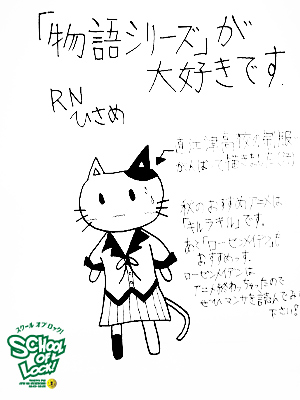 「物語シリーズ」が
大好きです
RN
ひさめ
直江津高校の制服
がんばって描きました
私のおすすめアニメは
「キルラキル」です。
あと「ローゼンメイデン」も
おすすめっす。
ローゼンメイデンは
アニメが終わっちゃったので
ぜひマンガを読んでみて
下さい!
スクール オブ ロック!
SCHOOL
OF
LOCK!